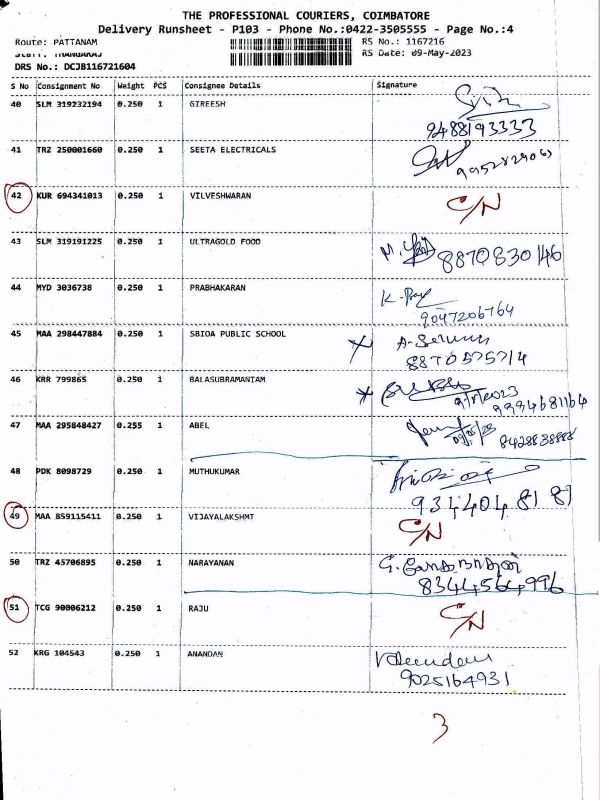 THE PROFESSIONAL COURIERS, COIMBATORE
Delivery Runsheet - P103 - Phone No.:0422-3505555 - Page No.:4
Route: PATTANAM RS No.: 1167216
Staff: THANGARAJ RS Date: 09-May-2023
DRS No.: DCJB116721604
S No Consignment No Weight PCS Consignee Details Signature
40 SLM 319232194 0.250 1 GIREESH
9488193333
41 TRZ 250001660 0.250 1 SEETA ELECTRICALS
42 KUR 694341013 0.250 1 VILVESHWARAN C/N
43 SLM 319191225 0.250 1 ULTRAGOLD FOOD 8870830146
44 MYD 3036738 0.250 1 PRABHAKARAN
9047206764
45 MAA 298447884 0.250 1 SBIOA PUBLIC SCHOOL
8870575714
46 KRR 799865 0.250 1 BALASUBRAMANIAM
9994681164
47 MAA 295848427 0.255 1 ABEL
48 PDK 8098729 0.250 1 MUTHUKUMAR
9344048181
49 MAA 859115411 0.250 1 VIJAYALAKSHMT C/N
50 TRZ 45706895 0.250 1 NARAYANAN
8344564996
51 TCG 90006212 0.250 1 RAJU C/N
52 KRG 104543 0.250 1 ANANDAN
9025164931
3